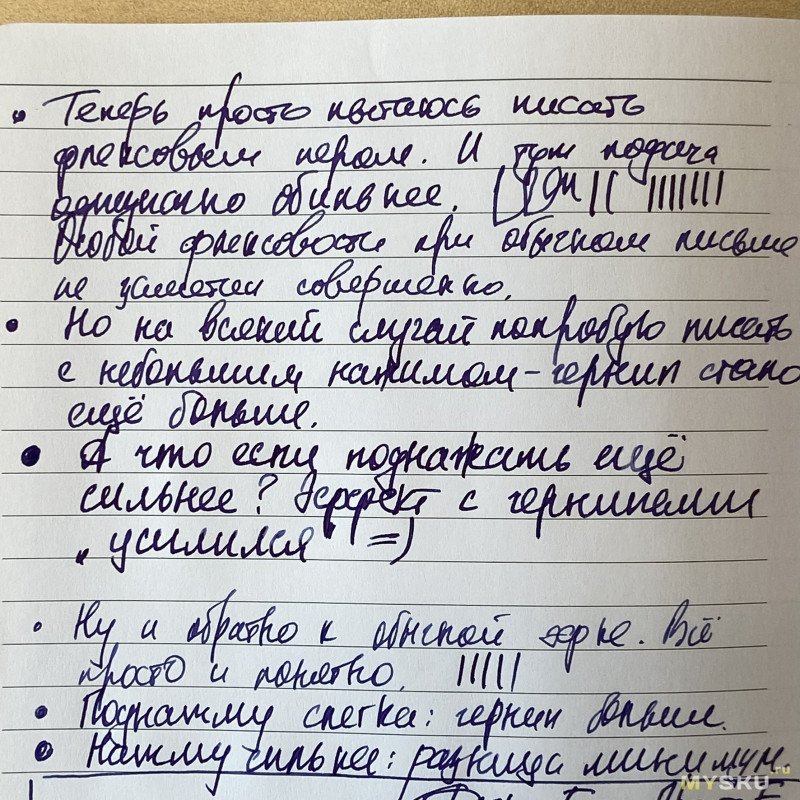 • Теперь просто пытаюсь писать
флексовым пером. И тут подача
однозначно обильнее.
Особой флексовости при обычном письме
не заметен совершенно.
• Но на всякий случай попробую писать
с небольшим нажимом - чернил стало
ещё больше.
• А что если поднажать ещё
сильнее? Эффект с чернилами
„усилился" =)
• Ну и обратно к обычной эфке. Всё
просто и понятно.
• Поднажму слегка: чернил больше.
• Нажму сильнее: разница минимум.
MYSKU.ru